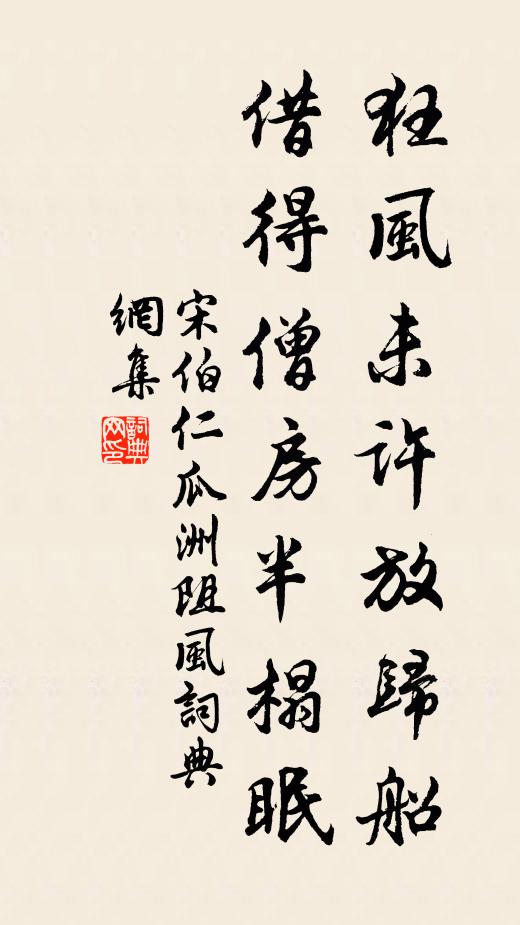 狂風未許放歸船
借得僧房半榻眠
宋伯仁瓜洲阻風詞典
網集
詞典網印